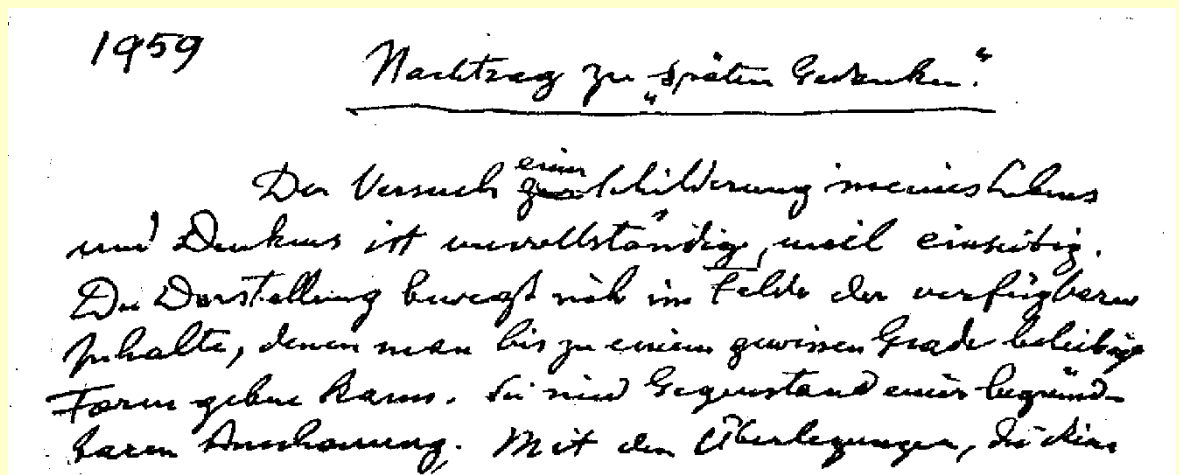 1959
Nachtrag zu „späten Gedanken“.
Der Versuch einer Schilderung meines Lebens
und Denkens ist unvollständig, weil einseitig.
Die Darstellung bewegt sich im Felde der verfügbaren
Inhalte, denen man bis zu einem gewissen Grade beliebige
Form geben kann. Sie sind Gegenstand einer begründ-
baren Anschauung. Mit den Überlegungen, die